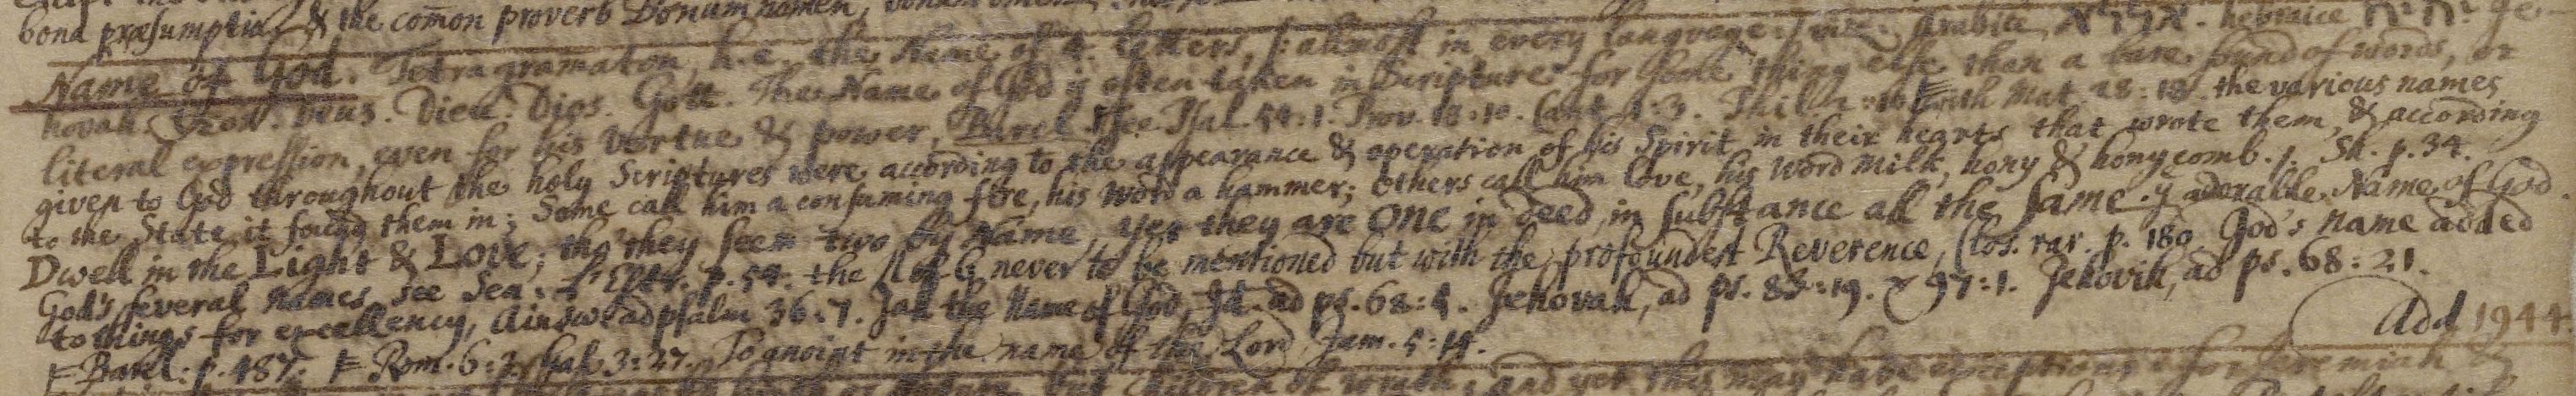 bona præsumptia, & the com̄on proverb Bonum nomen, bonum omen
Name of God. Tetragramaton, h.e. the Name of 4. letters, /:allmost in every language:/ viz. Arabice, hebraice יהוה. Je-
hovah. God. Deus. Dieu. Dios. Gott. The Name of God is often taken in Scripture for some thing else than a bare sound of words, or
literal expression, even for his vertue & power, Barcl. See Psal. 54:1. Prov. 18:10. Cant. 1:3. Phil. 2:10. with Mat. 28:18. the various names
given to God throughout the holy Scriptures were according to the appearance & operation of his Spirit in their hearts that wrote them, & according
to the State it found them in; Some call him a consuming fire, his word a hammer; others call him love, his word milk, hony & honycomb. J. Sh. p. 34.
Dwell in the Light & Love; tho' they seem two by Name, yet they are One in deed, in substance all the same. y adorable Name of God
God's several names see Sea: p. 54. the N of G. never to be mentioned but with the profoundest Reverence, Clos. rar. p. 180. God's name added
to things for excellency, Ainsw. ad psalm 36:7. Jah the Name of God, Id. ad ps. 68:5. Jehovah, ad ps. 83:19. & 97:1. Jehovih, ad ps. 68:21.
Barcl. p. 487. Rom. 6:3. Gal. 3:27. To anoint in the name of the Lord, Jam. 5:14. Add 1944
children of wrath, and yet this may have exceptions: for Jeremiah &